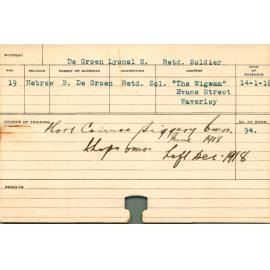 STUDENT
De Groen Lyonel S. Retd. Soldier
AGE RELIGION PARENT OR GUARDIAN OCCUPATION ADDRESS DATE OF ENTRANCE
19 Hebrew B. De Groen Retd. Sol. "The Wigwam" 14-1-18
Evans Street
Waverley
COURSE OF TRAINING No.
Wool Course 6mos. 94.
June 1918
Shops 6mos Left Dec. 1918
RESULTS